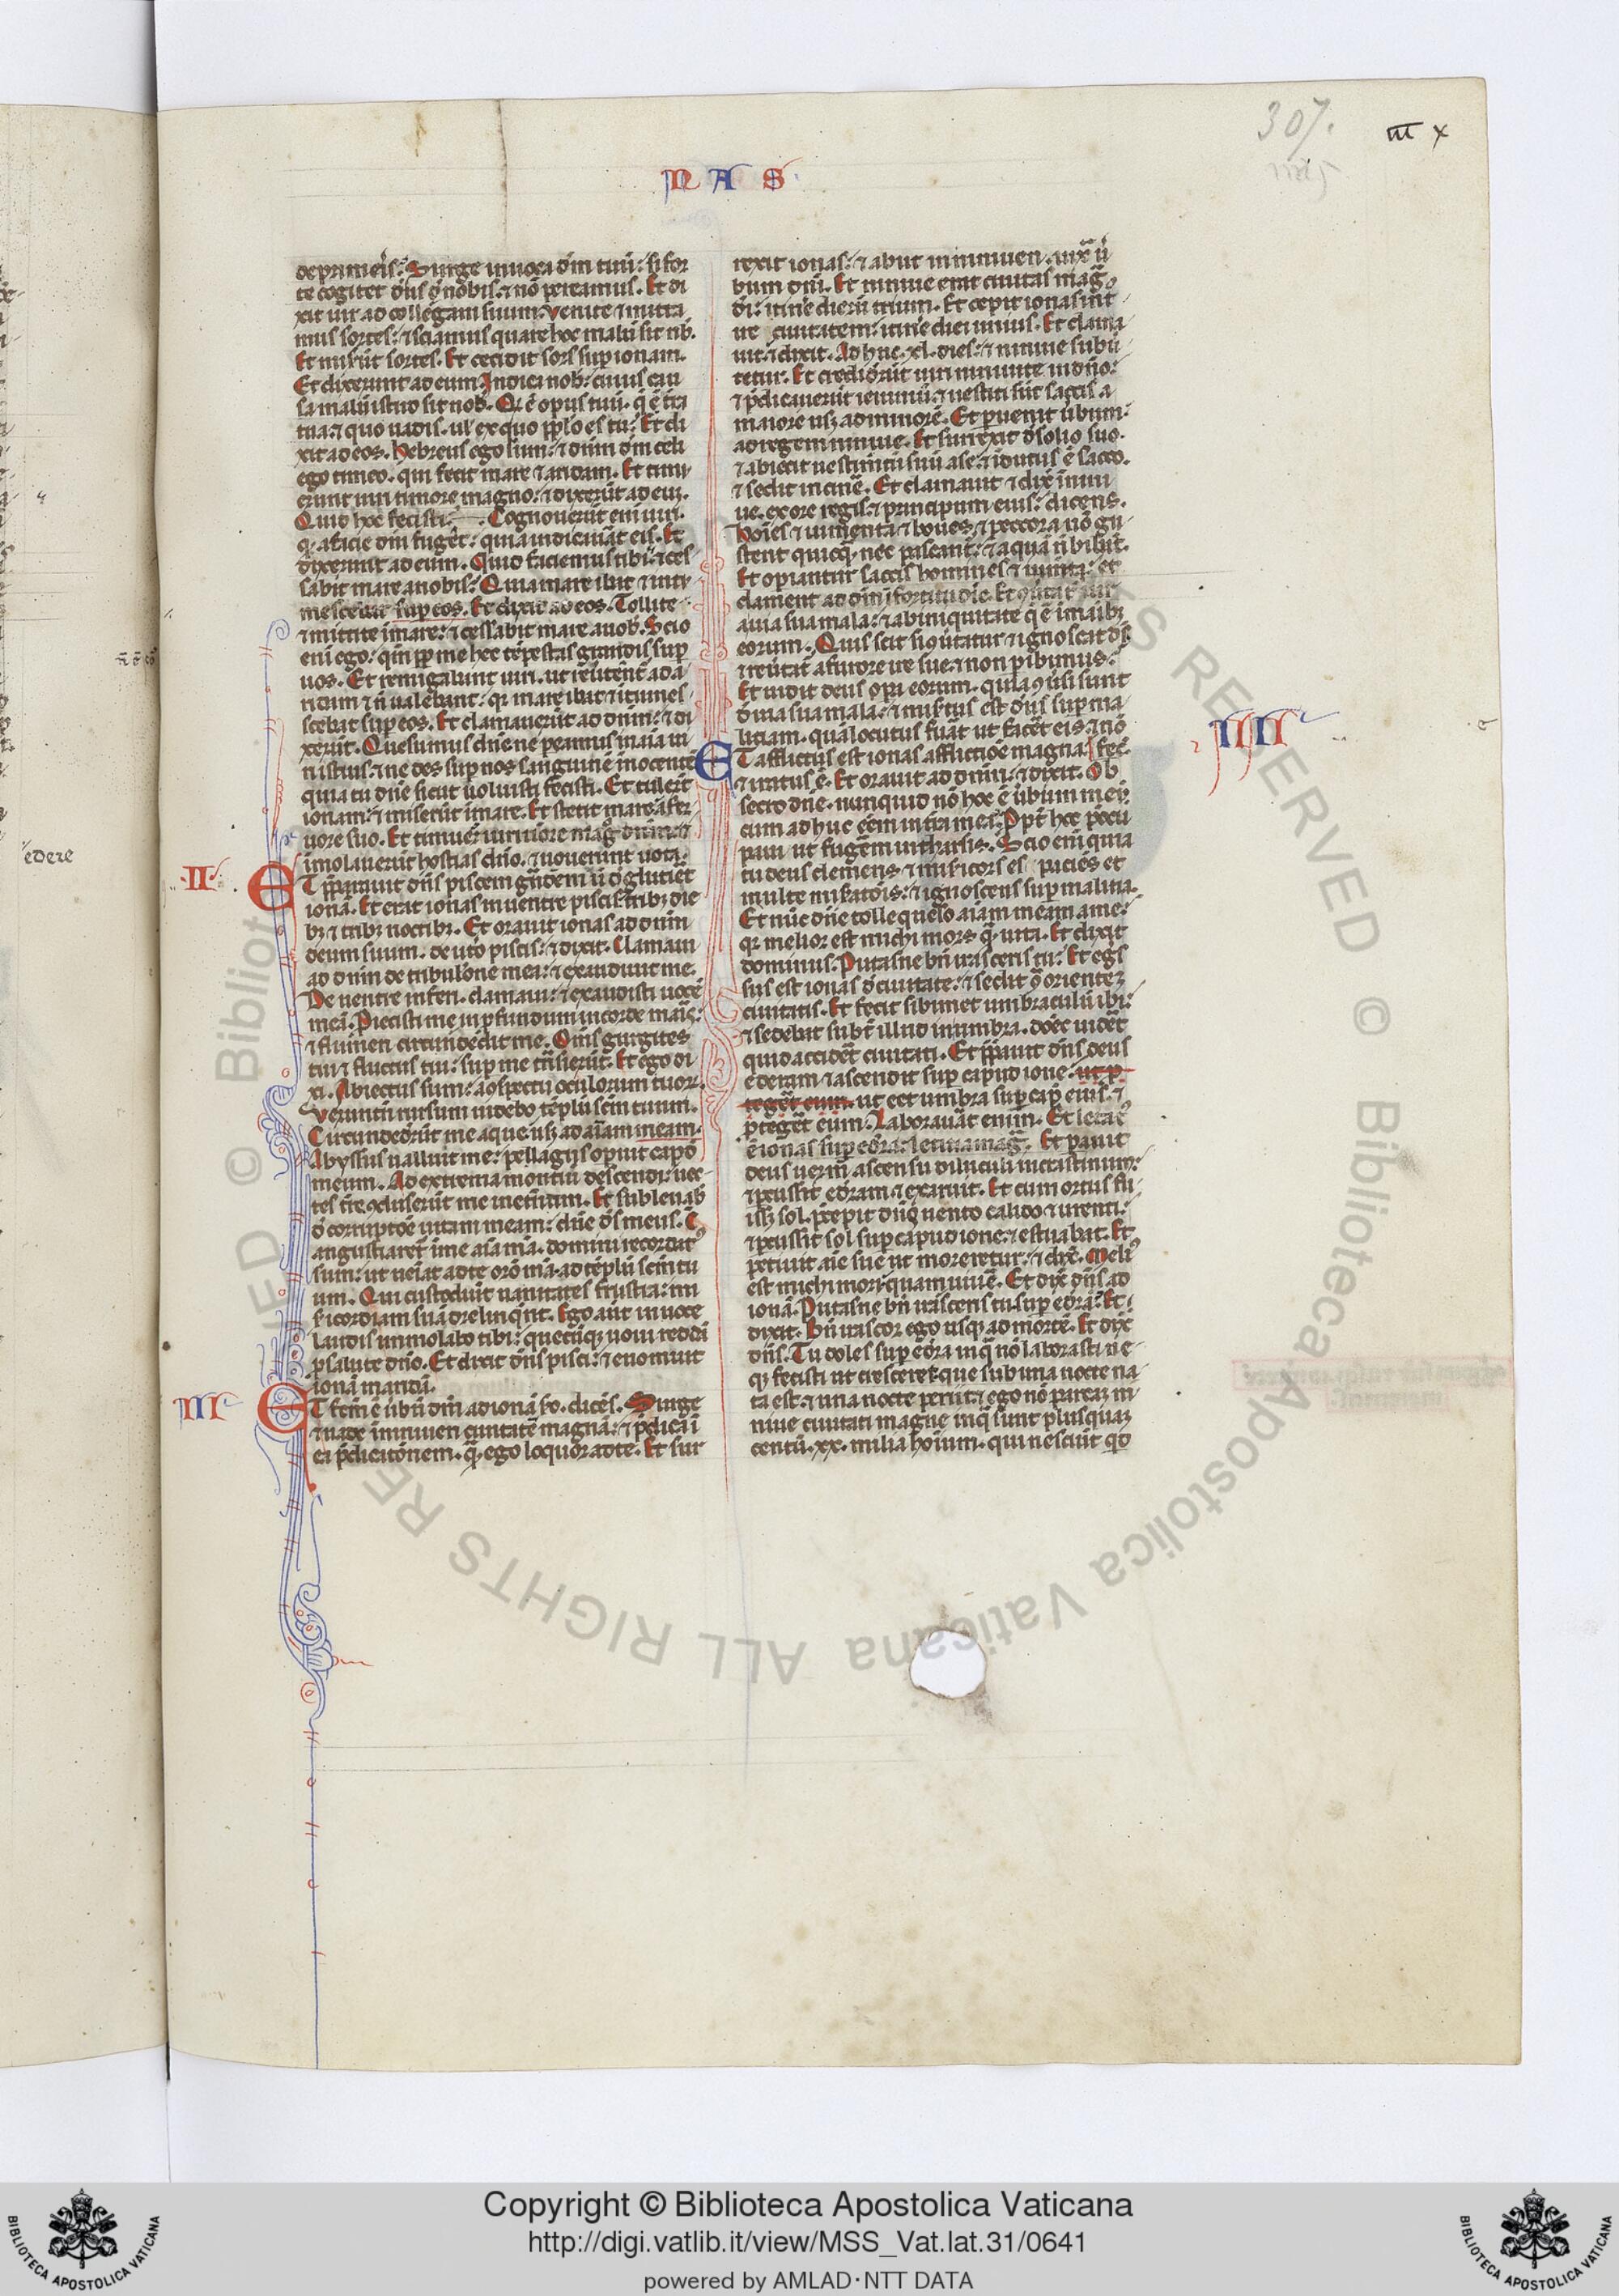 307.
m x
NAS
deprimeris. Surge inuoca dm tuu: si for
te cogitet ds d nobis. & no pereamus. Et di
xit uir ad collegam suum. Venite & mitta
mus sortes: & sciamus quare hoc malu sit nb.
Et miserut sortes. Et cecidit sors sup ionam.
Et dixerunt ad eum. Indica nob: cuius cau
sa malu istud sit nob. Qd e opus tuu. q e tra
tua: & quo uadis. ul ex quo pplo es tu: Et di
xit ad eos. Hebreus ego sum: & dnm dm celi
ego timeo. qui fecit mare & aridam. Et timu
erunt uiri timore magno: & dixerut ad eu.
Quid hoc fecisti. Cognouerut eni uiri.
q a facie dni fugeret: quia indicauat eis. Et
dixerunt ad eum. Quid faciemus tibi: & ces
sabit mare a nobis: Quia mare ibat & intu
mescebat sup eos. Et dixit ad eos. Tollite
& mittite i mare: & cessabit mare a uob. Scio
eni ego: qm pp me hec tepestas grandis sup
uos. Et remigabant uiri. ut reuterent ad a
ridam & n ualebant: qr mare ibat & itumes
cebat sup eos. Et clamauerut ad dnm: & di
xerut. Quesumus dne ne peamus i aia ui
ri istius: & ne des sup nos sanguine inocente
quia tu dne sicut uoluisti fecisti. Et tulerut
ionam: & miserut i mare. Et stetit mare a fer
uore suo. Et timuer uiri timore mag dnm: &
imolauerut hostias dno. & uouerunt uota.
II
ET pparauit dns piscem grandem ut d glutiret
iona. Et erat ionas in uentre piscis tribz die
bz & tribz noctibz. Et orauit ionas ad dnm
deum suum. de uto piscis: & dixit. Clamaui
ad dnm de tribulone mea: & exaudiuit me.
De uentre inferi. clamaui: & exaudisti uoce
mea. Piecisti me in pfundum in corde maris:
& flumen circundedit me. Oms gurgites
tui & fluctus tui: sup me transierut. Et ego di
xi. Abiectus sum: a ospectu oculorum tuor
Verumtn rursum uidebo teplu scm tuum.
Circundederut me aque usz ad aiam meam.
Abyssus uallauit me: pellagus opuit capd
meum. Ad extrema montiu descendi: uec
tes tre ocluserut me ineternum. Et subleuab
d corruptoe uitam meam: dne ds meus. C
angustiaret i me aia ma. domini recordat
sum: ut ueiat ad te oro ma. ad teplu scm tu
um. Qui custodiut uanitates frustra: mi
sericordiam sua derelinqnt. Ego aut in uoce
laudis immolabo tibi: quecuqz uoui reddam
p salute dno. Et dixit dns pisci: & euomuit
iona i arida.
III
ET fcm e ubu dni ad iona so. dices. Surge
& uade i niniuen ciuitate magna: & pdica i
ea pdicatonem. qm ego loquor ad te. Et sur
rexit ionas: & abiit in niniuen. iuxta u
bum dni. Et niniue erat ciuitas mag
di: itine dieru trium. Et cepit ionas int
ire ciuitatem: itine diei unius. Et clama
uit & dixit. Adhuc .xl. dies: & niniue subu
tetur. Et crediderut uiri niniuite in dno:
& pdicauerut ieiuniu: & uestiti sut saccis a
maiore usz ad minore. Et puenit ubum:
ad regem niniue. Et surrexit d solio suo.
& abiecit uestimtu suu a se: & idutus e sacco.
& sedit in cine. Et clamauit & dix i nini
ue. ex ore regis & principum eius: dicens.
Hoies & iumenta & boues & peccora no gu
stent quicqz nec pascant: & aqua n bibat.
Et opiantur saccis homines & iumta: et
clament ad dnm i fortitudie. Et outat uir
a uia sua mala: & ab iniquitate q e i maibz
eorum. Quis scit si outatur & ignoscat ds
& reutat a furore ire sue: & non pibimus:
Et uidit deus opa eorum. quia ousi sunt
d uia sua mala: & misertus est dns sup ma
litiam. qua locutus fuat ut facet eis: & no
IIII
ET afflictus est ionas afflictioe magna: fec
& iratus e. Et orauit ad dnm: & dixit. Ob
secro dne. nunquid no hoc e ubum meu
cum adhuc eem in tra mea: Ppt hoc pocu
paui ut fugem in tharsis. Scio eni quia
tu deus clemens & misericors es. patiens et
multe miseratois: & ignoscens sup malitia.
Et nuc dne tolle queso aiam meam a me:
qr melior est michi mors q uita. Et dixit
dominus. Putasne bn irasceris tu: Et egs
sus est ionas d ciuitate: & sedit o orientez
ciuitatis. Et fecit sibimet umbraculu ibi:
& sedebat subt illud in umbra. donec uidet
quid accidet ciuitati. Et pparauit dns deus
ederam & ascendit sup caput ione. ut p
teget eum. ut eet umbra sup cap eius. &
pteget eum. Laborauat enim. Et letat
e ionas sup edera: letitia mag. Et parauit
deus uerm ascensu diluculi in crastinum:
& pcussit ederam & exaruit. Et cum ortus fu
isz sol. pcepit dns uento calido & urenti:
& pcussit sol sup caput ione: & estuabat. Et
petiuit aie sue ut moreretur: & dix. Meli
est michi mori quam uiue. Et dix dns ad
iona. Putasne bn irasceris tu sup edera: Et
dixit. Bn irascor ego usqz ad morte. Et dix
dns. Tu doles sup edera in q no laborasti ne
qz fecisti ut cresceret que sub una nocte na
ta est. & una nocte periit: & ego no parcaz ni
niue ciuitati magne in q sunt plusquaz
centu .xx. milia hoium. qui nesciut qd
edere
Copyright © Biblioteca Apostolica Vaticana
http://digi.vatlib.it/view/MSS_Vat.lat.31/0641
powered by AMLAD·NTT DATA
BIBLIOTECA APOSTOLICA VATICANA
BIBLIOTECA APOSTOLICA VATICANA
© Biblioteca Apostolica Vaticana ALL RIGHTS RESERVED